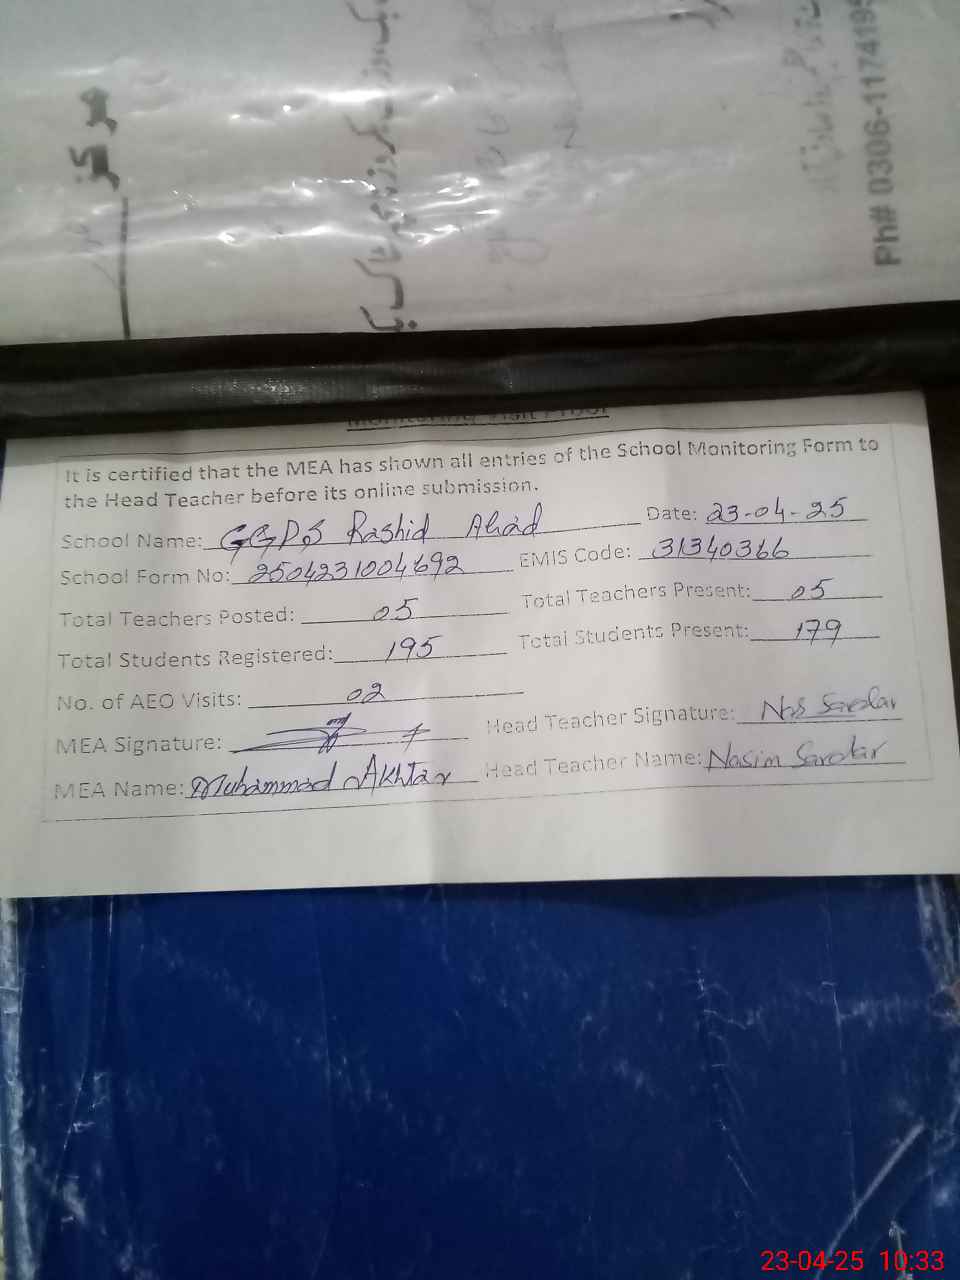 مرکز
Ph# 0306-1174195
Monitoring Visit Proof
It is certified that the MEA has shown all entries of the School Monitoring Form to
the Head Teacher before its online submission.
School Name: GGPS Rashid Ahad Date: 23-04-25
School Form No: 2504231004692 EMIS Code: 31340366
Total Teachers Posted: 05 Total Teachers Present: 05
Total Students Registered: 195 Total Students Present: 179
No. of AEO Visits: 02
MEA Signature: Head Teacher Signature: Nas Sardar
MEA Name: Muhammad Akhtar Head Teacher Name: Nasim Sardar
23-04-25 10:33